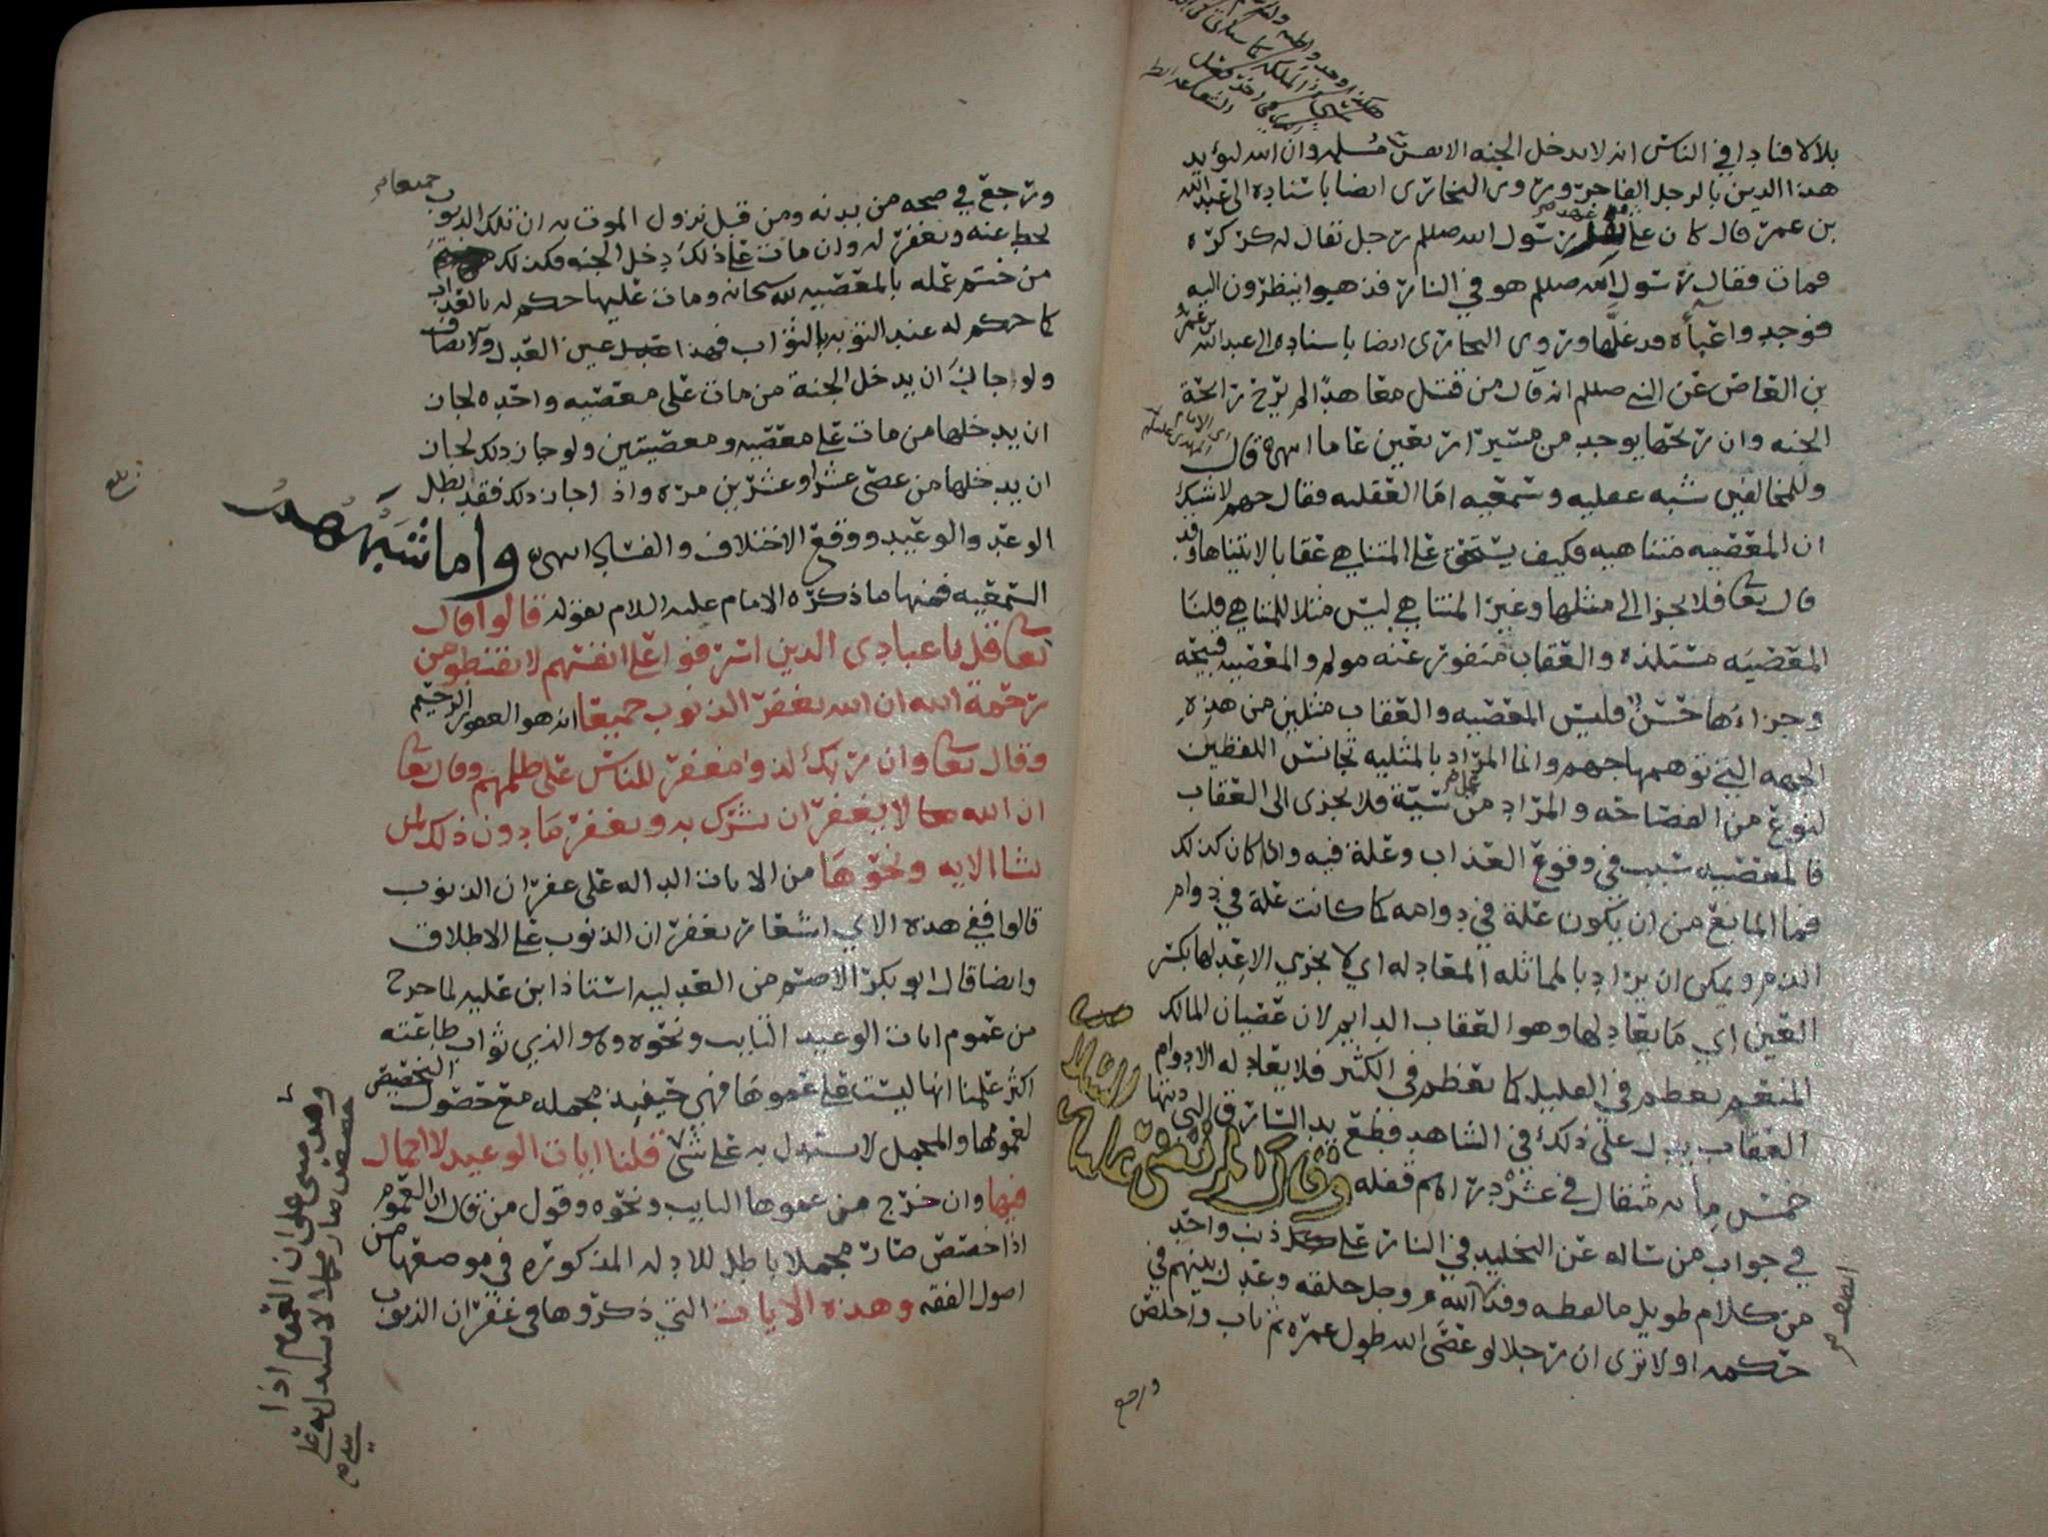 بلالا فنادا في الناس انه لا يدخل الجنه الا نفس مسلمه وان الله ليؤيد
هذا الدين بالرجل الفاجر وروى البخاري ايضا باسناده الى عبدالله
بن عمر قال كان على ثقل رسول الله صللم رجل يقال له كركره
فمات فقال رسول الله صللم هو في النار فذهبوا ينظرون اليه
فوجدوا عباه قد غلها وروى البخاري ايضا باسناده الى عبدالله بن عمر
بن العاص عن النبي صللم انه قال من قتل معاهدًا لم يرح رائحة
الجنه وان ريحها يوجد من مسيرة اربعين عاما انتهى قال
وللمخالفين شبه عقليه وسمعيه اما العقليه فقال جهم لاشك
ان المعصيه متناهيه فكيف يستحق على المتناهي عقابا لا يتناها وقد
قال تعالى فلا يجزا الى مثلها وغير المتناهي ليس مثلا للمتناهي قلنا
المعصيه مستلذه والعقاب منفور عنه مولم والمعصيه قبيحه
وجزاءها حسن فليس المعصيه والعقاب مثلين من هذه
الجهه التي توهمها جهم وانما المراد بالمثليه تجانس اللفظين
لنوع من الفصاحه والمراد من عمل سيئة فلا يجزى الى العقاب
فالمعصيه سبب في وقوع العذاب وعلة فيه واذا كان كذلك
فما المانع من ان يكون علة في دوامه كما كانت علة في دوام
الذم ويمكن ان يراد بالمماثله المعادله اي لا يجزي الا عدلها بكسر
العين اي ما يعادلها وهو العقاب الدايم لان عصيان المالك
المنعم يعظم في القليل كما يعظم في الكثير فلا يعادله الا دوام
العقاب يدل على ذلك في الشاهد قطع يد السارق التي ديتها
خمس مائه مثقال في عشرة دراهم فعله وقال المرتضى عليه
في جواب من ساله عن التخليد في النار على ذنب واحد
من كلام طويل ما لفظه وقد الله عز وجل خلقه وعدل بينهم في
حكمه اولا ترى ان رجلا لو عصى الله طول عمره ثم تاب واخلص
ورجع
جميعا
ورجع في صحه من بدنه ومن قبل نزول الموت به ان تلك الذنوب
تحط عنه ويغفر له وان مات على ذلك دخل الجنه فكذلك
من ختم عمله بالمعصيه لله سبحانه ومات عليها حكم له بالعذاب
كما حكم له عند التوبه بالثواب فهذا عين العدل والانصاف
ولو جاز ان يدخل الجنة من مات على معصيه واحده لجاز
ان يدخلها من مات على معصيه ومعصيتين ولو جاز ذلك لجاز
ان يدخلها من عصى عشرا وعشرين مره واذا جاز ذلك فقد بطل
الوعد والوعيد ووقع الاختلاف والفساد انتهى واما شبههم
السمعيه فمنها ما ذكره الامام عليه السلام بقوله قالوا قال
تعالى قل يا عبادي الذين اسرفوا على انفسهم لا تقنطوا من
رحمة الله ان الله يغفر الذنوب جميعا انه هو الغفور الرحيم
وقال تعالى وان ربك لذوا مغفرة للناس على ظلمهم وقال تعالى
ان الله لا يغفر ان يشرك به ويغفر ما دون ذلك لمن
يشا الايه ونحوها من الايات الداله على غفران الذنوب
قالوا ففي هذه الاي اشعار بغفران الذنوب على الاطلاق
وايضا قال ابو بكر الاصم من العدليه استاذ ابن عليه لما خرج
من عموم ايات الوعيد التايب ونحوه وهو الذي ثواب طاعته
اكثر علمنا انها ليست على عمومها فهي حينيذ مجمله مع حصول التخصيص
لعمومها والمجمل لا يستدل به على شي قلنا ايات الوعيد لا اجمال
فيها وان خرج من عمومها التايب ونحوه وقول من قال ان العموم
اذا خصص صار مجملا باطل للادله المذكوره في موضعها من
اصول الفقه وهذه الايات التي ذكروها في غفران الذنوب
وهذا مبني على ان العموم اذا
خصص صار مجملا لا يستدل به على
شي